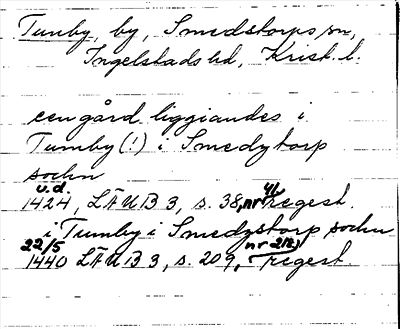 Tumby, by, Smedstorps sn,
Ingelstads hd, Krist. l.
een gård liggiandes i
Tumby (!) i Smedytorp
sochn
u.d.
1424, LÄUB 3, s. 38, nr 46 regest.
i Tumby i Smedzstorp sochn
22/5
1440 LÄUB 3, s. 209, regest.